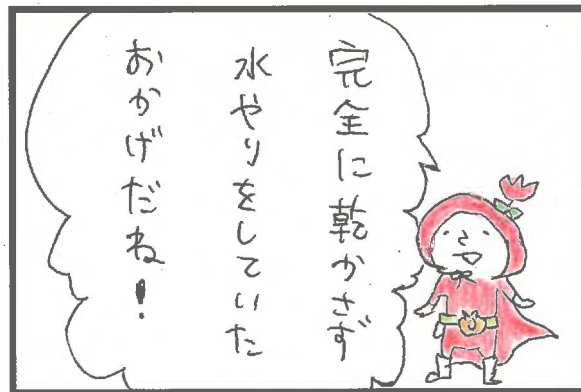 完全に乾かさず
水やりをしていた
おかげだね!